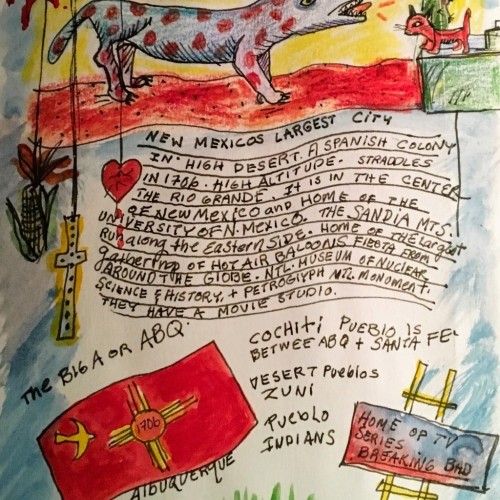 NEW MEXICOS LARGEST CITY
IN HIGH DESERT. A SPANISH COLONY
IN 1706. HIGH ALTITUDE. STRADDLES
THE RIO GRANDE. It IS IN THE CENTER
OF NEW MEXICO AND HOME OF THE
UNIVERSITY OF N. MEXICO. THE SANDIA MTS.
RUN along the EASTERN SIDE. HOME OF THE largest
gathering OF HOT AIR BALOONS FIESTA FROM
AROUND THE GLOBE. NTL. MUSEUM OF NUCLEAR
SCIENCE & HISTORY, + PETROGLYPH NTL MONUMENT.
THEY HAVE A MOVIE STUDIO.
THE BIG A OR ABQ.
COCHITI PUEBLO IS
BETWEE ABQ + SANTA FE
DESERT PUEBLOS
ZUNI
PUEBLO
INDIANS
1706
ALBUQUERQUE
HOME OF TV
SERIES
BREAKING BAD